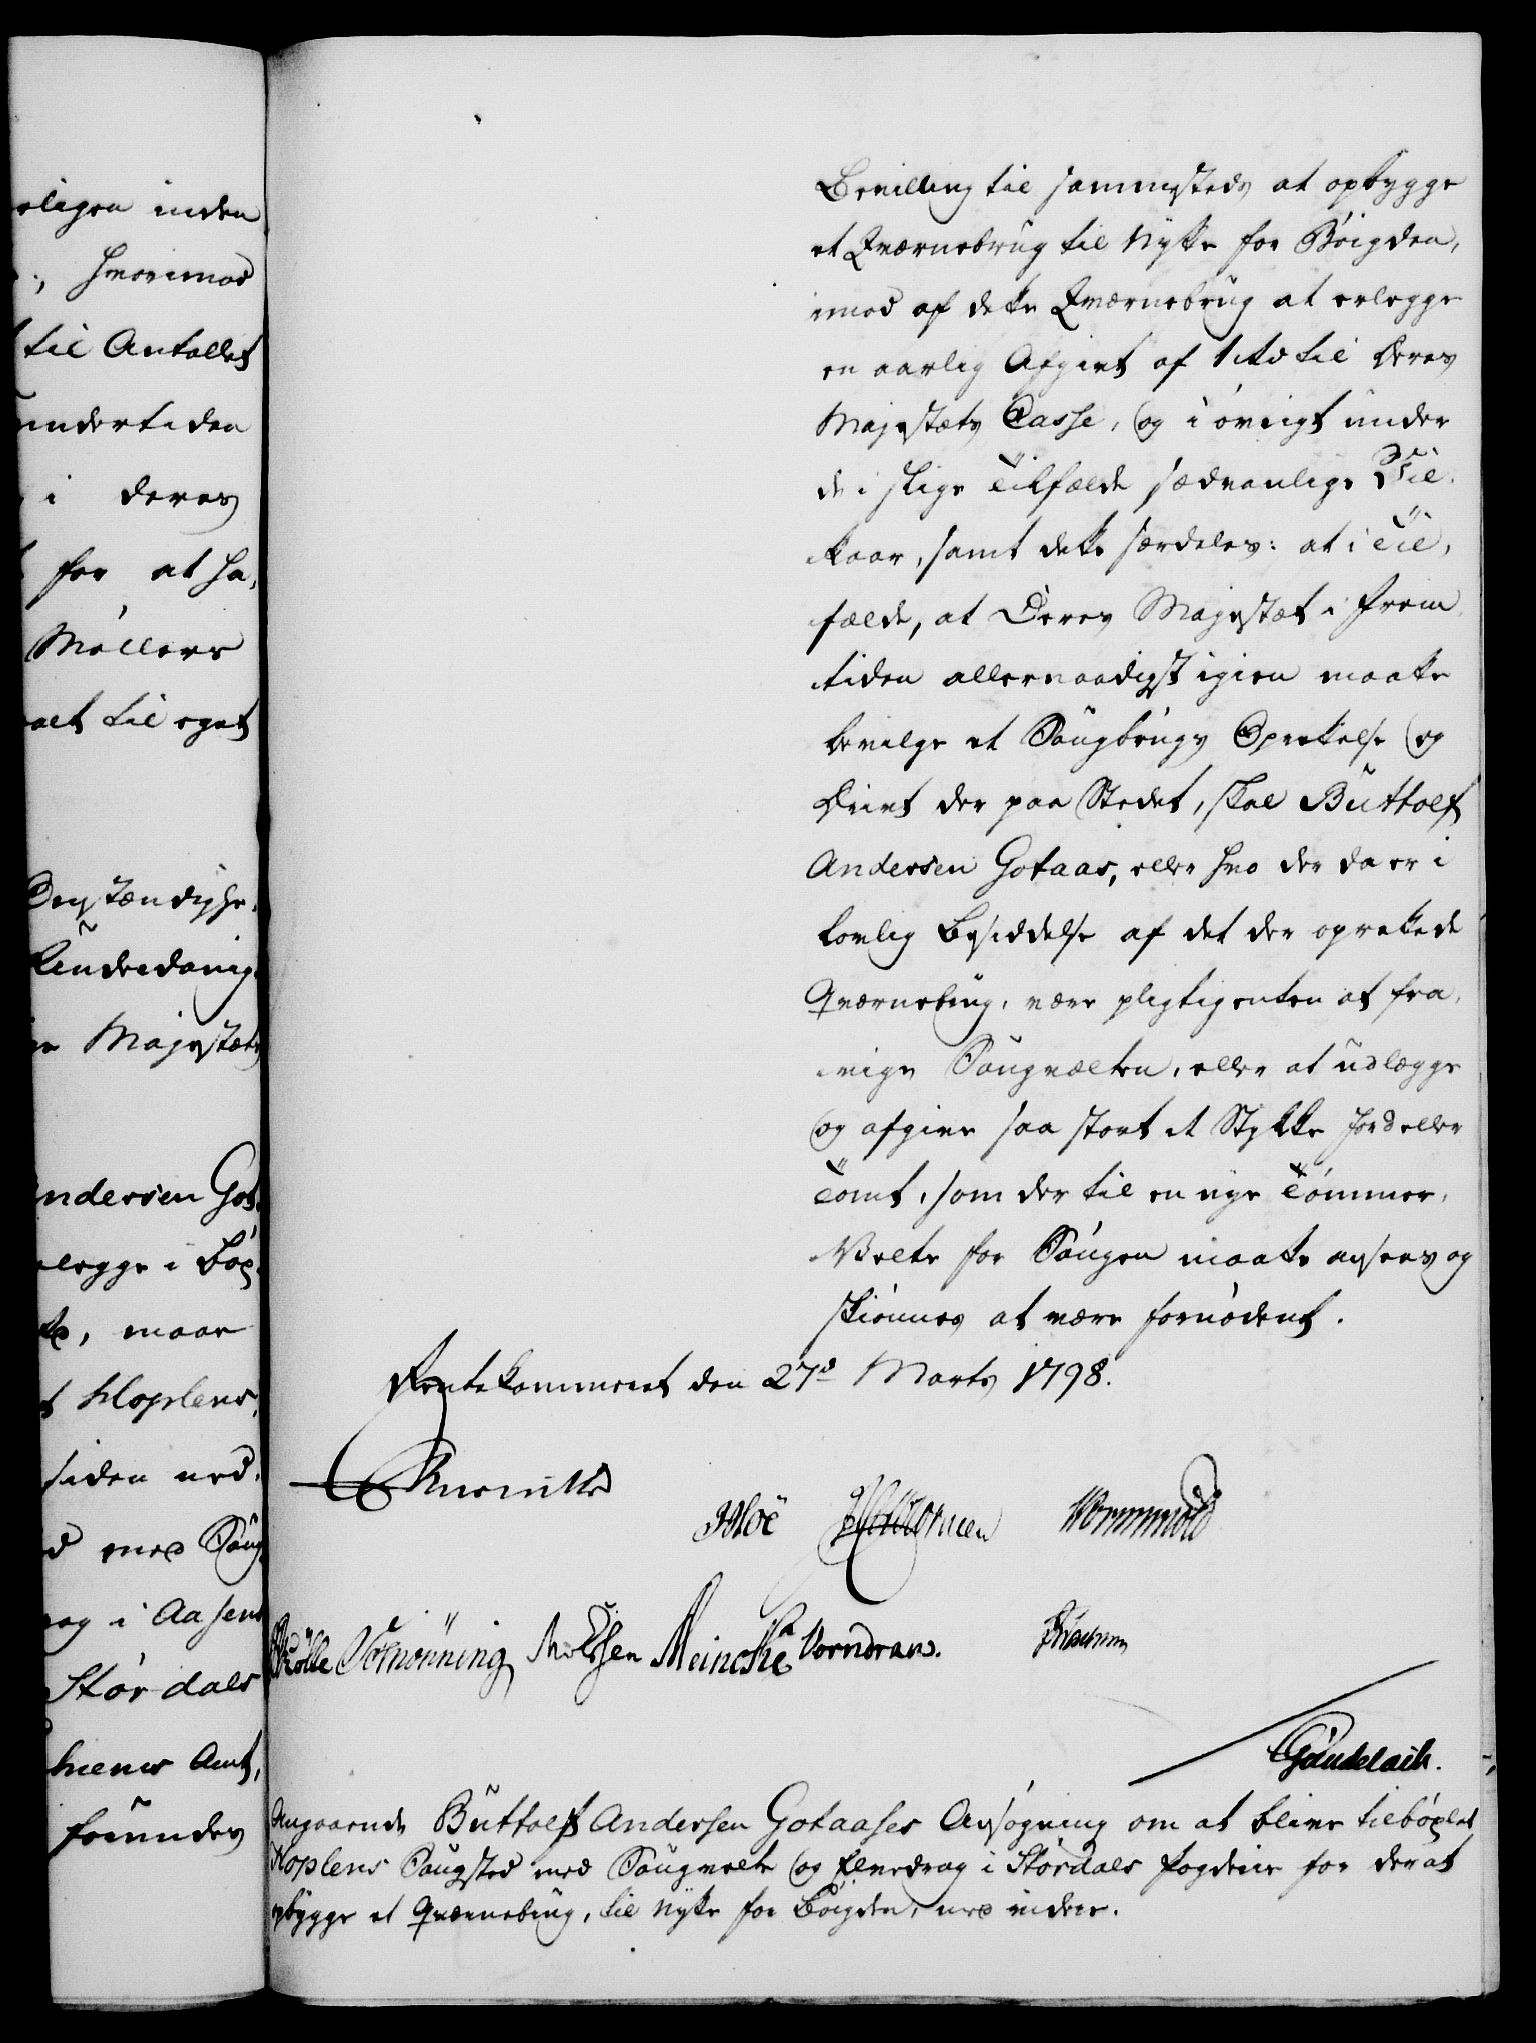 eligen inden
hvorimod
til Antallet
undertiden
i deres
for at ha,
Møllers
alt til eget
Omstændighe,
Underdanig,
Majestæts
ndersen Got,
legge i Bøx,
maae
Hoplens
siden ned,
med Saug
og i Aasens
Stördals
hiems Amt,
funder
Bevilling til sammesteds at opbygge
et Qværnebrug til Nytte for Bøigden,
imod af dette Qværnebrug at erlegge
en aarlig Afgivt af 1 rd til Deres
Majestæts Casse, og i øvrigt under
de i slige Tilfælde sædvanlige Vil,
kaar, samt dette særdeles: at i Til,
fælde, at Deres Majestæt i Frem,
tiden allernaadigst igien maatte
bevilge et Saugbrugs Oprettelse og
Drivt der paa Stedet, skal Buttolf
Andersen Gotaas, eller hvo der da er i
lovlig Besiddelse af det der oprettede
Qværnebrug, være pligtig enten at fra,
vige Saugvelten, eller at udlægge
og afgive saa stort et Stykke Jord eller
Tomt, som der til en nye Tømmer,
Velte for Saugen maatte ansees og
skiønnes at være fornødent.
Rentekammeret den 27d Marts 1798.
Wormskiold
Meincke Vorndran.
Gundelach.
Angaaende Buttolf Andersen Gotaases Ansøgning om at blive tilbøxlet
Hoplens Saugsted med Saugvelte og Elvedrag i Stördals Fogderie for der at
opbygge et Qværnebrug, til Nytte for Bøigden, med videre.